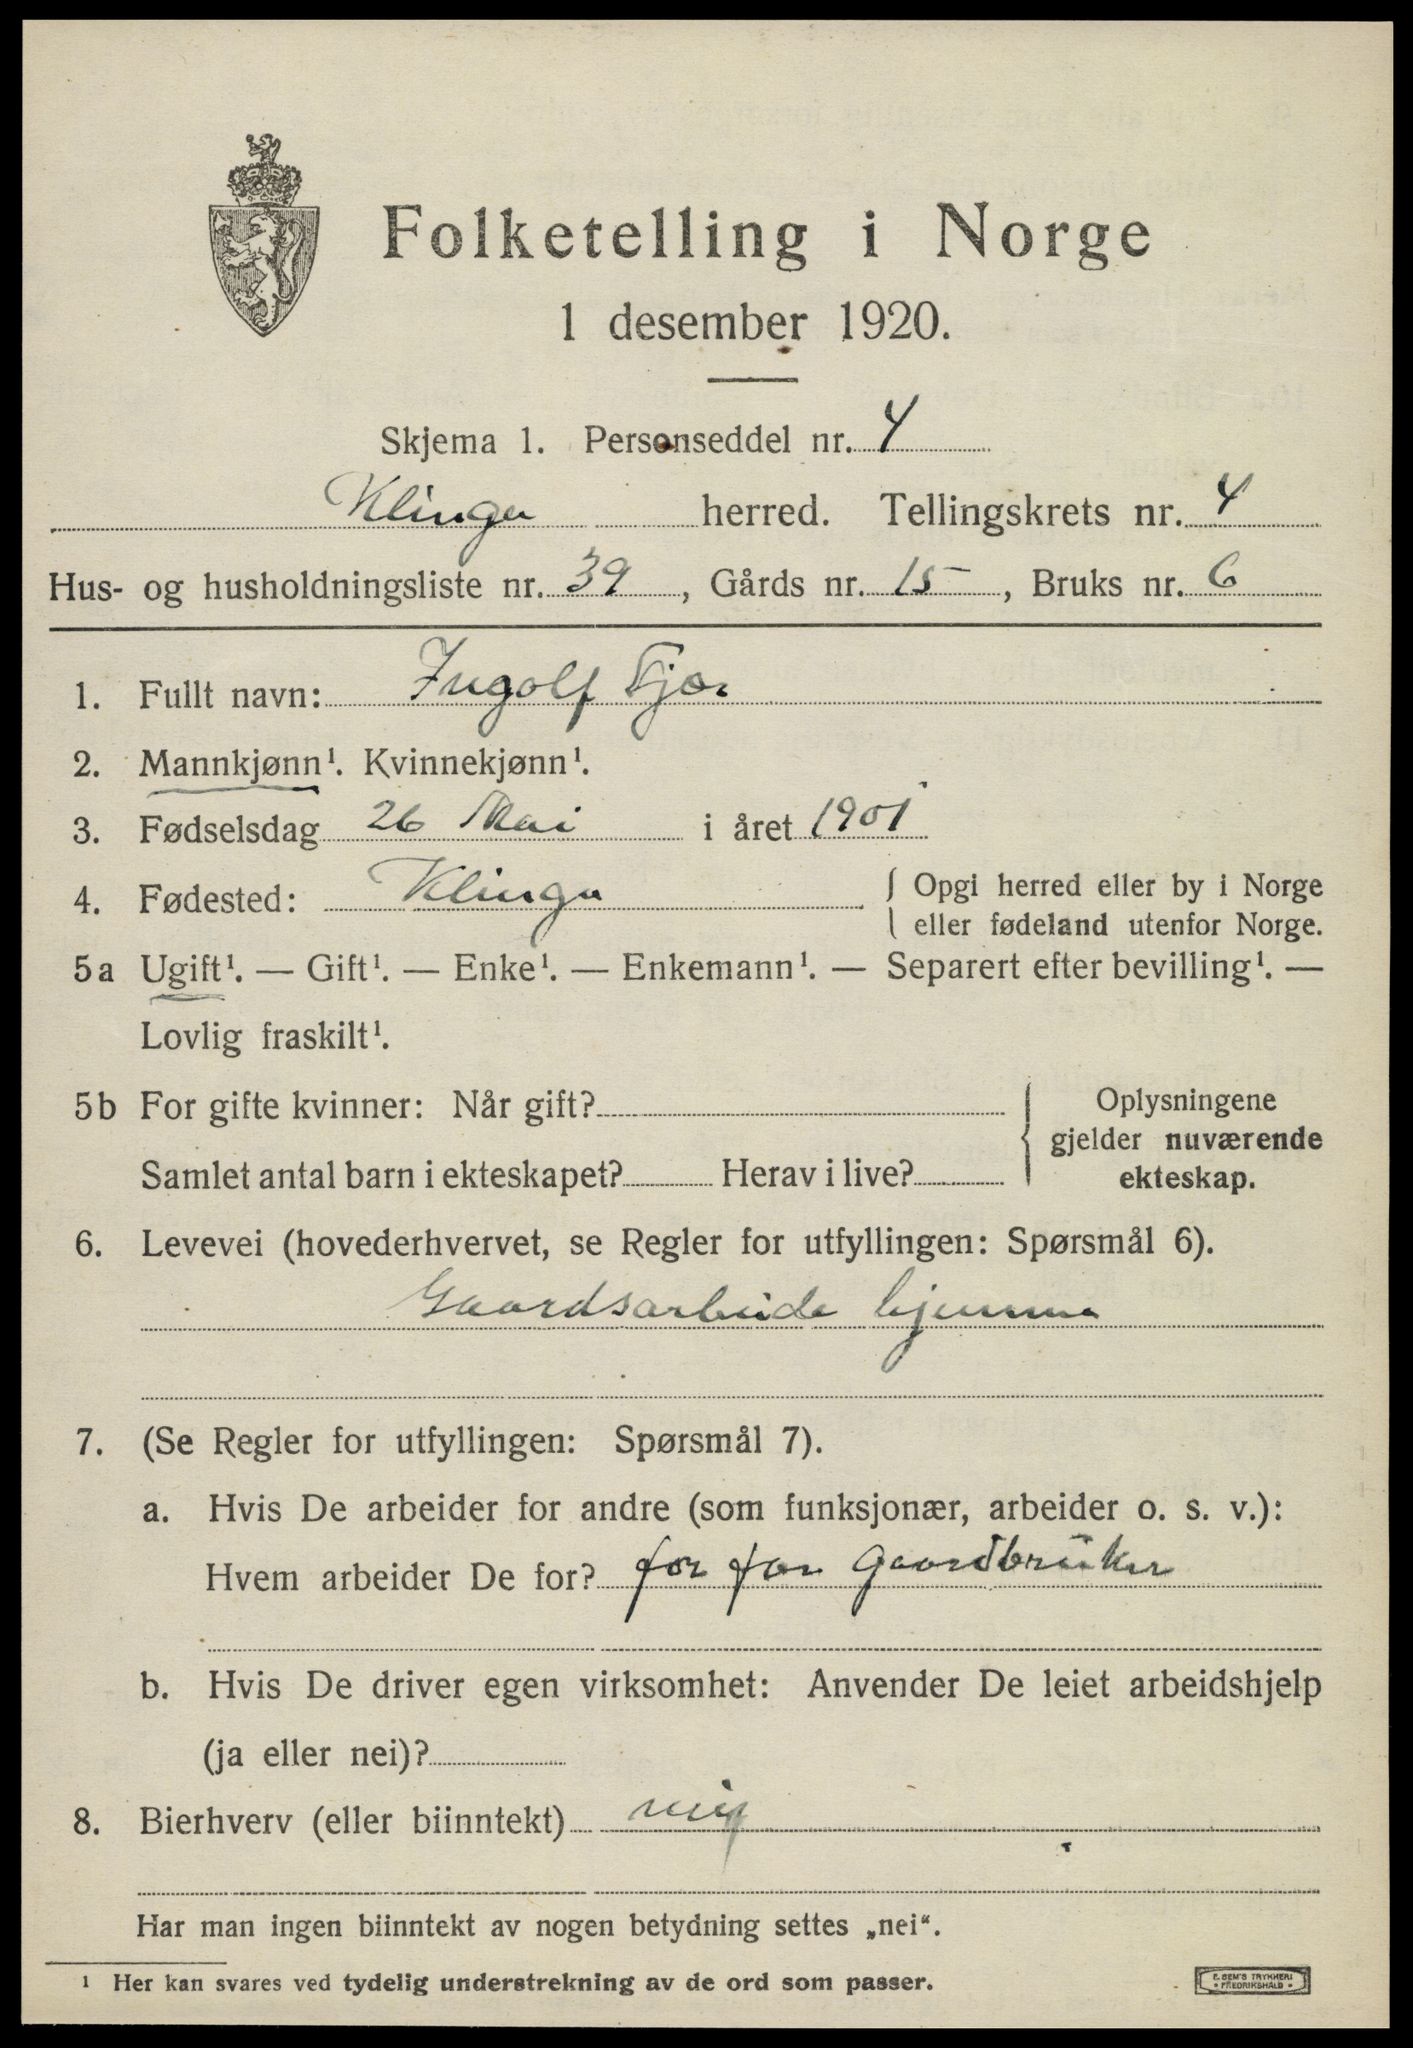 Folketelling i Norge
1 desember 1920.
Skjema 1. Personseddel nr. 4
Klinga herred. Tellingskrets nr. 4
Hus- og husholdningsliste nr. 39, Gårds nr. 15, Bruks nr. 6
1. Fullt navn: Ingolf Fjær
2. Mannkjønn¹. Kvinnekjønn¹.
3. Fødselsdag 26 Mai i året 1901
4. Fødested: Klinga { Opgi herred eller by i Norge
eller fødeland utenfor Norge.
5a Ugift¹. — Gift¹. — Enke¹. — Enkemann¹. — Separert efter bevilling¹. —
Lovlig fraskilt¹.
5b For gifte kvinner: Når gift? { Oplysningene
gjelder nuværende
Samlet antal barn i ekteskapet? Herav i live? ekteskap.
6. Levevei (hovederhvervet, se Regler for utfyllingen: Spørsmål 6).
Gaardsarbeide hjemme
7. (Se Regler for utfyllingen: Spørsmål 7).
a. Hvis De arbeider for andre (som funksjonær, arbeider o. s. v.):
Hvem arbeider De for? for far Gaardbruker
b. Hvis De driver egen virksomhet: Anvender De leiet arbeidshjelp
(ja eller nei)?
8. Bierhverv (eller biinntekt) nei
Har man ingen biinntekt av nogen betydning settes „nei“.
¹ Her kan svares ved tydelig understrekning av de ord som passer.
E. SEM'S TRYKKERI
• FREDRIKSHALD •